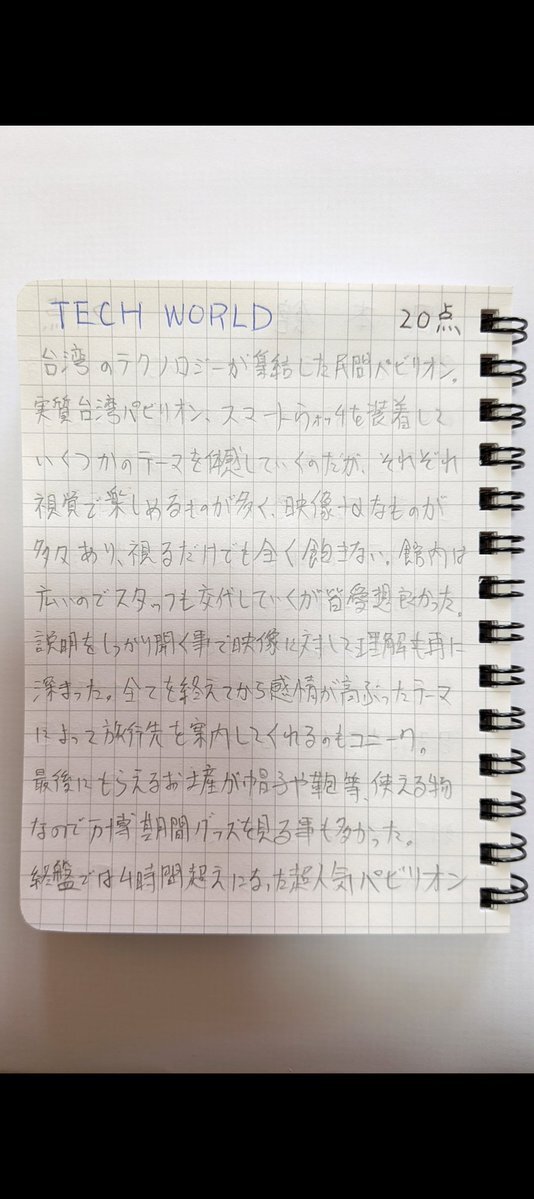 TECH WORLD 20点
台湾のテクノロジーが集結した民間パビリオン。
実質台湾パビリオン、スマートウォッチを装着して
いくつかのテーマを体感していくのだが、それぞれ
視覚で楽しめるものが多く、映像+αなものが
多々あり、視るだけでも全く飽きない。館内は
広いのでスタッフも交代していくが皆愛想良かった。
説明をしっかり聞く事で映像に対して理解も更に
深まった。全てを終えてから感情が高ぶったテーマ
によって旅行先を案内してくれるのもユニーク。
最後にもらえるお土産が帽子や鞄等、使える物
なので万博期間グッズを見る事も多かった。
終盤では4時間超えになった超人気パビリオン